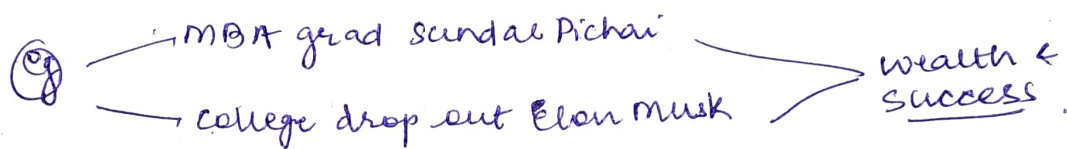 eg
MBA grad Sundar Pichai
College drop out Elon Musk
wealth &
success.